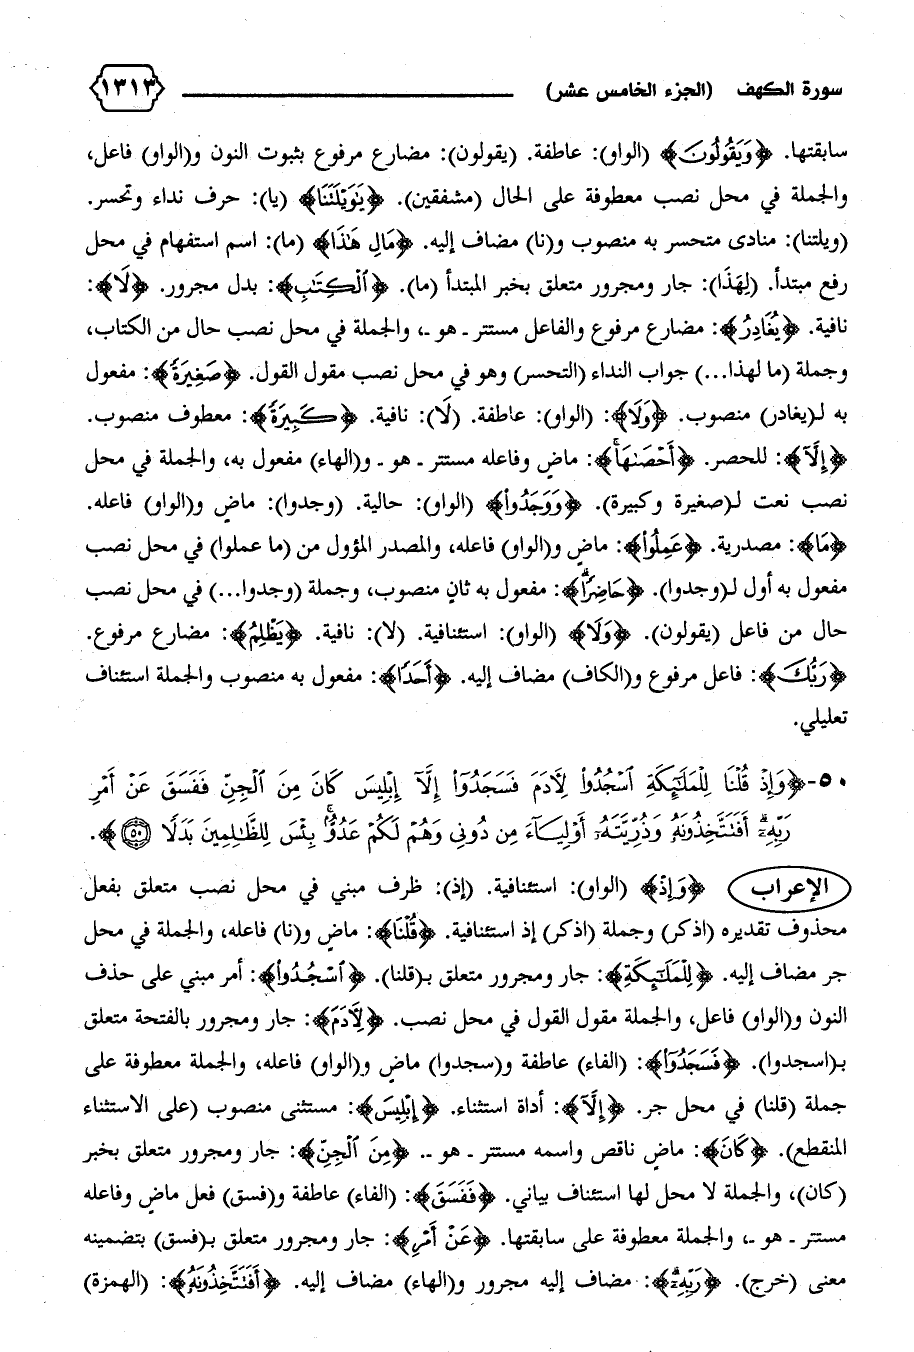 سورة الكهف (الجزء الخامس عشر) ١٣١٣
سابقتها. ﴿وَيَقُولُونَ﴾ (الواو): عاطفة. (يقولون): مضارع مرفوع بثبوت النون و(الواو) فاعل،
والجملة في محل نصب معطوفة على الحال (مشفقين). ﴿يَٰوَيْلَتَنَا﴾ (يا): حرف نداء وتحسر.
(ويلتنا): منادى متحسر به منصوب و(نا) مضاف إليه. ﴿مَالِ هَٰذَا﴾ (ما): اسم استفهام في محل
رفع مبتدأ. (لِهَذَا): جار ومجرور متعلق بخبر المبتدأ (ما). ﴿ٱلْكِتَٰبِ﴾: بدل مجرور. ﴿لَا﴾:
نافية. ﴿يُغَادِرُ﴾: مضارع مرفوع والفاعل مستتر ـ هو ـ، والجملة في محل نصب حال من الكتاب،
وجملة (ما لهذا...) جواب النداء (التحسر) وهو في محل نصب مقول القول. ﴿صَغِيرَةً﴾: مفعول
به لـ(يغادر) منصوب. ﴿وَلَا﴾: (الواو): عاطفة. (لَا): نافية. ﴿كَبِيرَةً﴾: معطوف منصوب.
﴿إِلَّآ﴾: للحصر. ﴿أَحْصَىٰهَا﴾: ماضٍ وفاعله مستتر ـ هو ـ و(الهاء) مفعول به، والجملة في محل
نصب نعت لـ(صغيرة وكبيرة). ﴿وَوَجَدُوا۟﴾ (الواو): حالية. (وجدوا): ماضٍ و(الواو) فاعله.
﴿مَا﴾: مصدرية. ﴿عَمِلُوا۟﴾: ماضٍ و(الواو) فاعله، والمصدر المؤول من (ما عملوا) في محل نصب
مفعول به أول لـ(وجدوا). ﴿حَاضِرًا﴾: مفعول به ثانٍ منصوب، وجملة (وجدوا...) في محل نصب
حال من فاعل (يقولون). ﴿وَلَا﴾ (الواو): استئنافية. (لا): نافية. ﴿يَظْلِمُ﴾: مضارع مرفوع.
﴿رَبُّكَ﴾: فاعل مرفوع و(الكاف) مضاف إليه. ﴿أَحَدًا﴾: مفعول به منصوب والجملة استئناف
تعليلي.
٥٠-﴿وَإِذْ قُلْنَا لِلْمَلَٰٓئِكَةِ ٱسْجُدُوا۟ لِأَدَمَ فَسَجَدُوٓا۟ إِلَّآ إِبْلِيسَ كَانَ مِنَ ٱلْجِنِّ فَفَسَقَ عَنْ أَمْرِ
رَبِّهِۦٓ أَفَتَتَّخِذُونَهُۥ وَذُرِّيَّتَهُۥٓ أَوْلِيَآءَ مِن دُونِى وَهُمْ لَكُمْ عَدُوٌّۢ بِئْسَ لِلظَّٰلِمِينَ بَدَلًا ۝٥٠﴾.
الإعراب ﴿وَإِذْ﴾ (الواو): استئنافية. (إذ): ظرف مبني في محل نصب متعلق بفعل
محذوف تقديره (اذكر) وجملة (اذكر) إذ استئنافية. ﴿قُلْنَا﴾: ماضٍ و(نا) فاعله، والجملة في محل
جر مضاف إليه. ﴿لِلْمَلَٰٓئِكَةِ﴾: جار ومجرور متعلق بـ(قلنا). ﴿ٱسْجُدُوا۟﴾: أمر مبني على حذف
النون و(الواو) فاعل، والجملة مقول القول في محل نصب. ﴿لِأَدَمَ﴾: جار ومجرور بالفتحة متعلق
بـ(اسجدوا). ﴿فَسَجَدُوٓا۟﴾: (الفاء) عاطفة و(سجدوا) ماضٍ و(الواو) فاعله، والجملة معطوفة على
جملة (قلنا) في محل جر. ﴿إِلَّآ﴾: أداة استثناء. ﴿إِبْلِيسَ﴾: مستثنى منصوب (على الاستثناء
المنقطع). ﴿كَانَ﴾: ماضٍ ناقص واسمه مستتر ـ هو ـ. ﴿مِنَ ٱلْجِنِّ﴾: جار ومجرور متعلق بخبر
(كان)، والجملة لا محل لها استئناف بياني. ﴿فَفَسَقَ﴾: (الفاء) عاطفة و(فسق) فعل ماضٍ وفاعله
مستتر ـ هو ـ، والجملة معطوفة على سابقتها. ﴿عَنْ أَمْرِ﴾: جار ومجرور متعلق بـ(فسق) بتضمينه
معنى (خرج). ﴿رَبِّهِۦٓ﴾: مضاف إليه مجرور و(الهاء) مضاف إليه. ﴿أَفَتَتَّخِذُونَهُۥ﴾: (الهمزة)